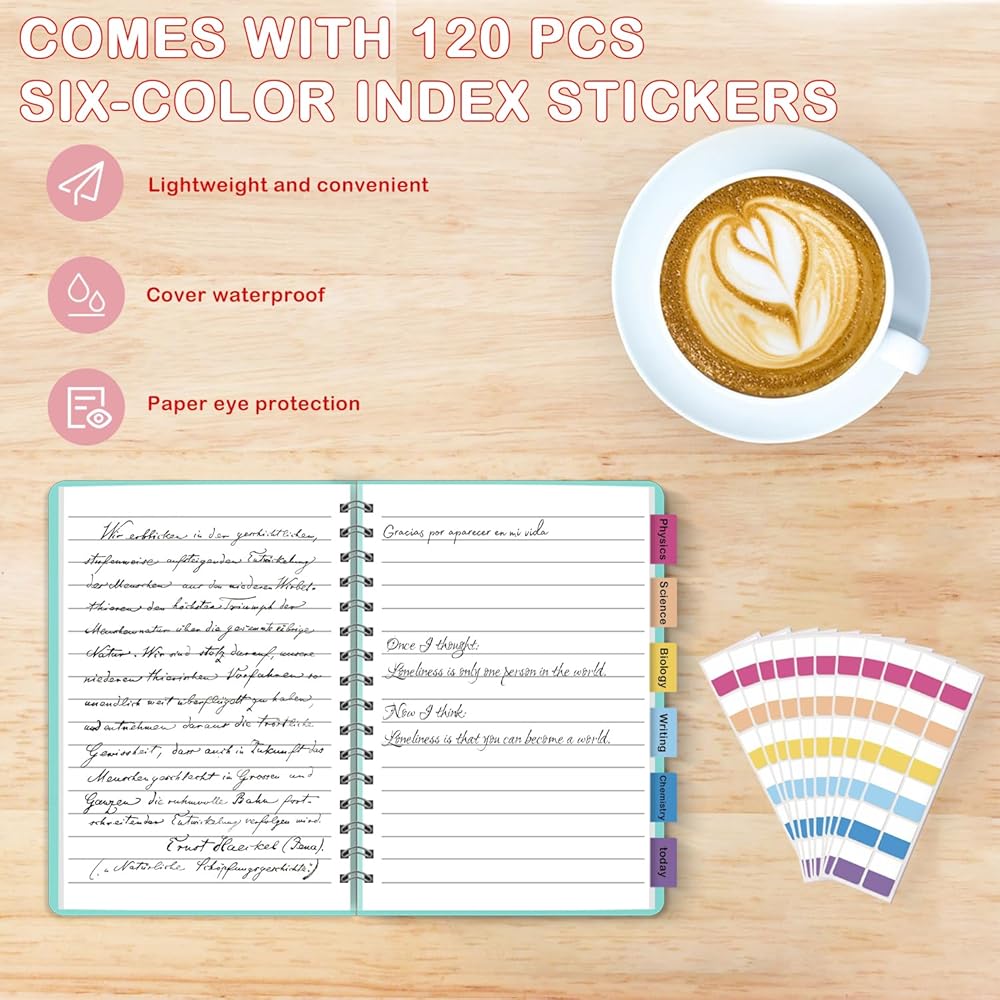 COMES WITH 120 PCS
SIX-COLOR INDEX STICKERS
Lightweight and convenient
Cover waterproof
Paper eye protection
Wir erblicken in der geschichtlichen,
stufenweise aufsteigenden Entwickelung
der Menschen aus den niederen Wirbel-
thieren den höchsten Triumph der
Menschennatur über die gesammte übrige
Natur. Wir sind stolz darauf, unsere
niederen thierischen Vorfahren so
unendlich weit überflügelt zu haben,
und entnehmen daraus die tröstliche
Gewissheit, dass auch in Zukunft das
Menschengeschlecht im Grossen und
Ganzen die ruhmvolle Bahn fort-
schreitender Entwickelung verfolgen wird.
Ernst Haeckel (Jena).
(„Natürliche Schöpfungsgeschichte“)
Gracias por aparecer en mi vida
Once I thought:
Loneliness is only one person in the world.
Now I think:
Loneliness is that you can become a world.
Physics
Science
Biology
Writing
Chemistry
today